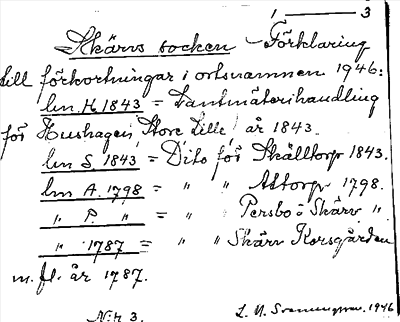 1 ——— 3
Skärvs socken – Förklaring
till förkortningar i ortsnamnen 1946:
lm. H. 1843 = Lantmäterihandling
för Hushagen, Stora Lille, år 1843.
lm S. 1843 = Dito för Skälltorp 1843.
lm A. 1798 = " " Attorp 1798.
" P. " = " " Persbo i Skärv ".
" 1787 = " " Skärv Korsgården
m. fl. år 1787.
N:r 3.
1946